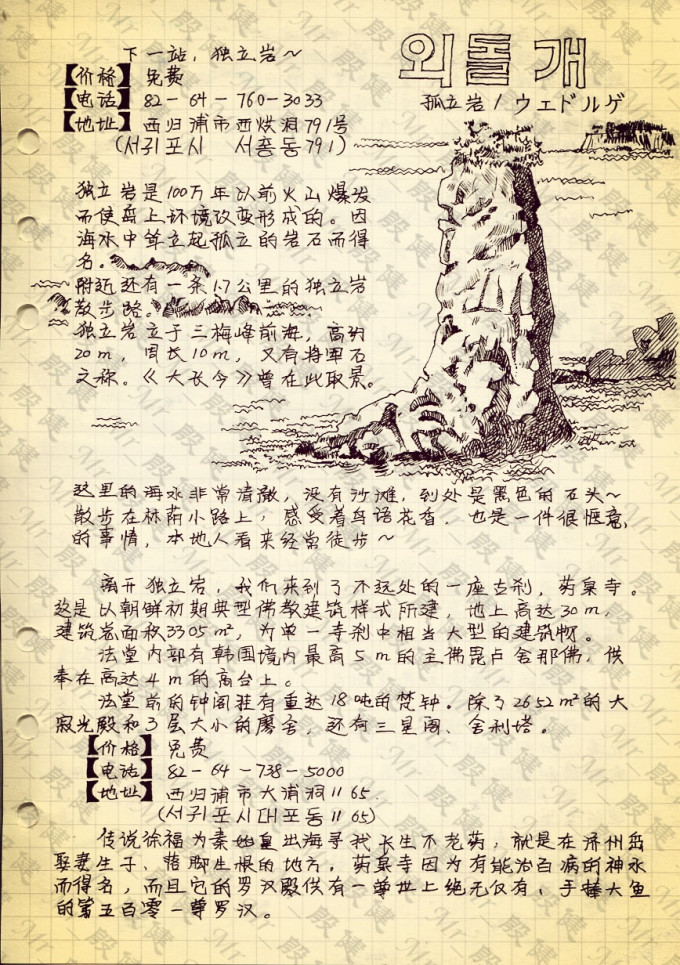 외돌개
孤立岩 / ウェドルゲ
下一站，独立岩～
【价格】免费
【电话】82-64-760-3033
【地址】西归浦市西烘洞791号
(서귀포시 서홍동791)
独立岩是100万年以前火山爆发
而使岛上环境改变形成的。因
海水中耸立起孤立的岩石而得
名。
附近还有一条1.7公里的独立岩
散步路。
独立岩立于三梅峰前海，高约
20m，周长10m，又有将军石
之称。《大长今》曾在此取景。
这里的海水非常清澈，没有沙滩，到处是黑色的石头～
散步在林荫小路上，感受着鸟语花香，也是一件很惬意
的事情，本地人看来经常徒步～
离开独立岩，我们来到了不远处的一座古刹，药泉寺。
这是以朝鲜初期典型佛教建筑样式所建，地上高达30m，
建筑总面积3305m²，为单一寺刹中相当大型的建筑物。
法堂内部有韩国境内最高5m的主佛毘卢舍那佛，供
奉在高达4m的高台上。
法堂前的钟阁驻有重达18吨的梵钟。除了2652m²的大
寂光殿和3层大小的廖舍，还有三星阁、舍利塔。
【价格】免费
【电话】82-64-738-5000
【地址】西归浦市大浦洞1165
(서귀포시대포동1165)
传说徐福为秦始皇出海寻找长生不老药，就是在济州岛
娶妻生子、落脚生根的地方。药泉寺因为有能治百病的神水
而得名，而且它的罗汉殿供有一尊世上绝无仅有、手捧大鱼
的第五百零一尊罗汉。
Mr_殷健